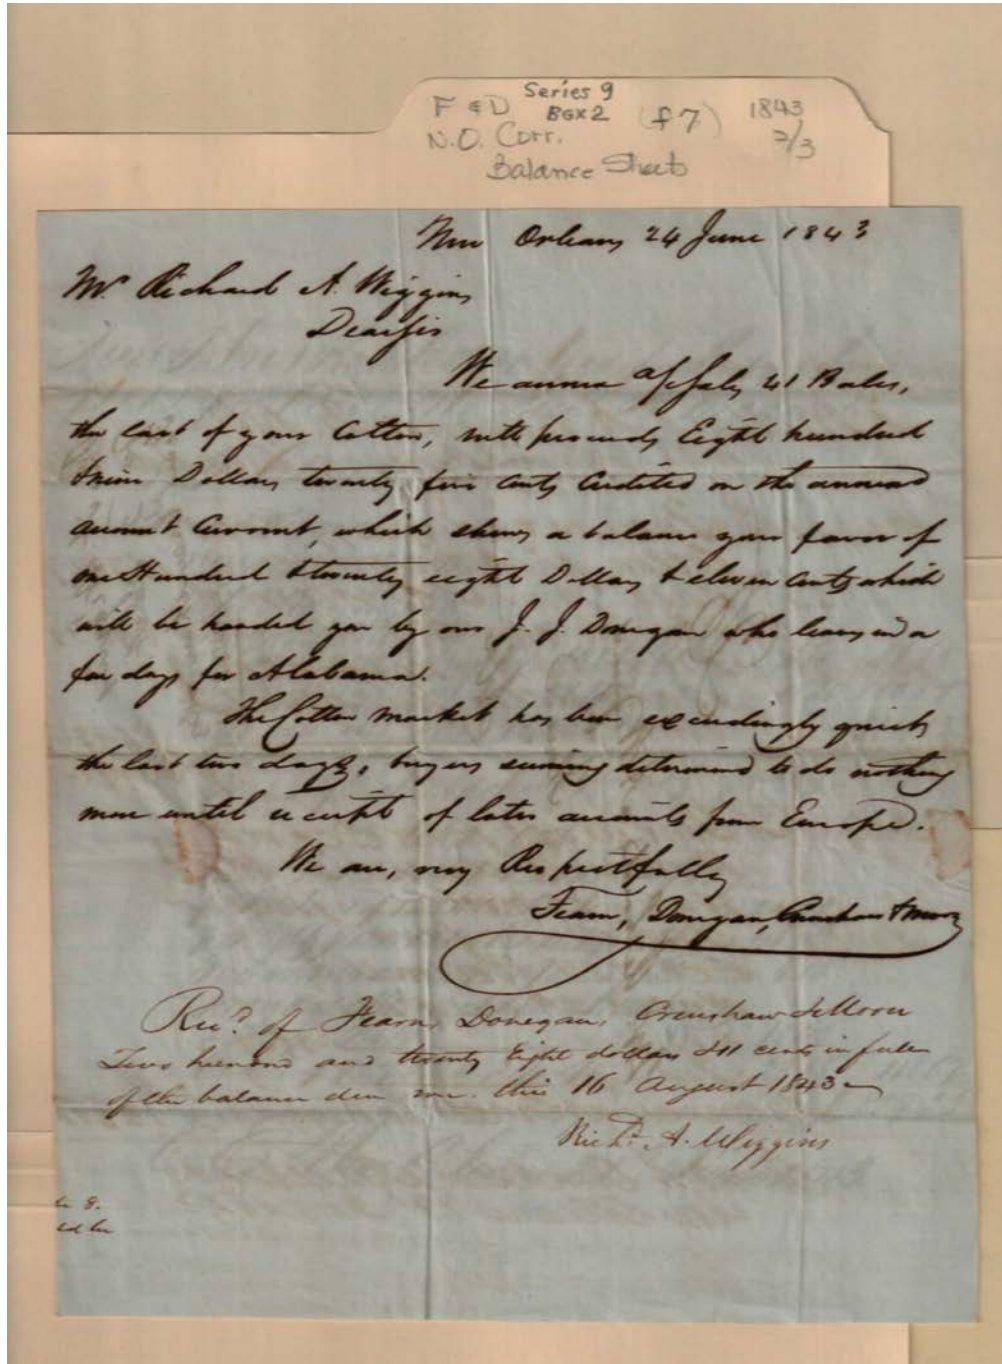 Series 9
F & D Box 2 (f7) 1843
N.O. Corr. 2/3
Balance Sheets
New Orleans 24 June 1843
Mr. Richard A. Wiggins
Dear Sir
We annex a/c Sales 41 Bales,
the last of your Cotton, nett proceeds Eight hundred
& nine Dollars twenty five cents credited on the annexed
account Current, which shows a balance your favor of
One Hundred & twenty eight Dollars & eleven cents which
will be handed you by our J. J. Donegan who leaves in a
few days for Alabama.
The Cotton market has been exceedingly quiet
the last two days, buyers seeming determined to do nothing
more until receipt of later accounts from Europe.
We are, very Respectfully
Fearn, Donegan, Crenshaw & Moore
Recd. of Fearn, Donegan, Crenshaw & Moore
and twenty Eight dollars & 11 cents in full
of the balance due me. this 16 August 1843
Richd. A. Wiggins